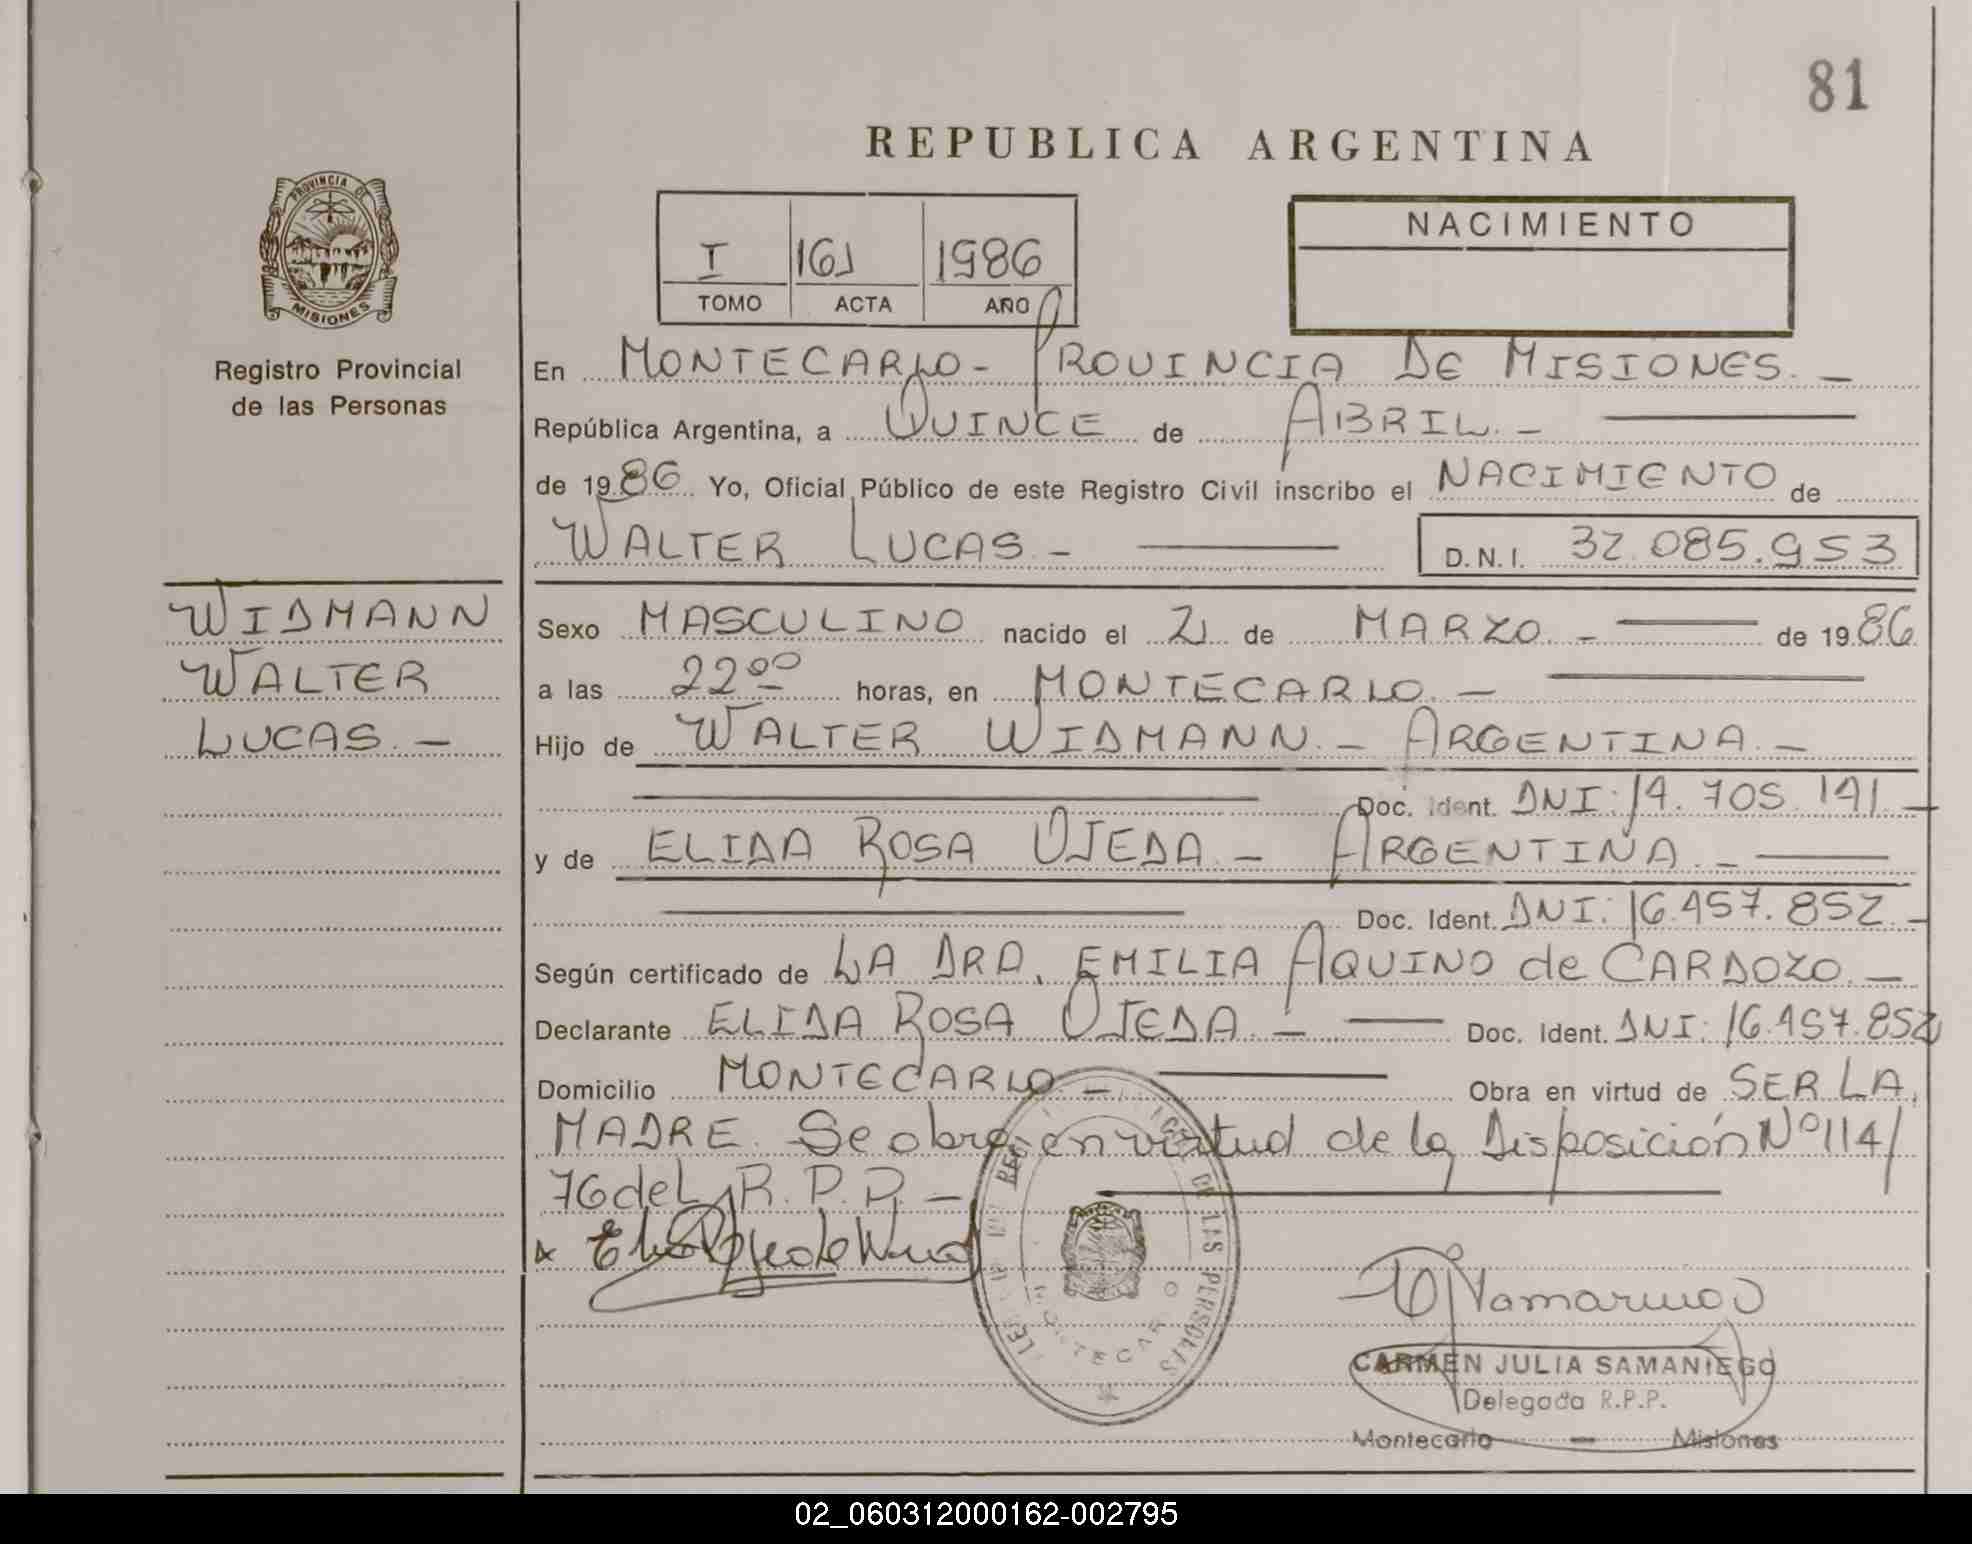 81
REPUBLICA ARGENTINA
PROVINCIA DE
MISIONES
Registro Provincial
de las Personas
I 161 1986
TOMO ACTA AÑO
NACIMIENTO
En MONTECARLO - PROVINCIA DE MISIONES. -
República Argentina, a QUINCE de ABRIL. -
de 1986 Yo, Oficial Público de este Registro Civil inscribo el NACIMIENTO de
WALTER LUCAS. - D.N.I. 32.085.953
WIDMANN
WALTER
LUCAS. -
Sexo MASCULINO nacido el 21 de MARZO. - de 1986
a las 22⁰⁰ horas, en MONTECARLO. -
Hijo de WALTER WIDMANN. - ARGENTINA. -
Doc. Ident. DNI: 14.705.141. -
y de ELIDA ROSA OJEDA. - ARGENTINA. -
Doc. Ident. DNI: 16.457.852. -
Según certificado de LA DRA. EMILIA AQUINO de CARDOZO. -
Declarante ELIDA ROSA OJEDA. - Doc. Ident. DNI: 16.457.852
Domicilio MONTECARLO. - Obra en virtud de SER LA
MADRE. Se obra en virtud de la Disposición Nº 114/
76 del R.P.P. -
DE LAS PERSONAS
MONTECARLO
CARMEN JULIA SAMANIEGO
Delegada R.P.P.
Montecarlo - Misiones
02_060312000162-002795